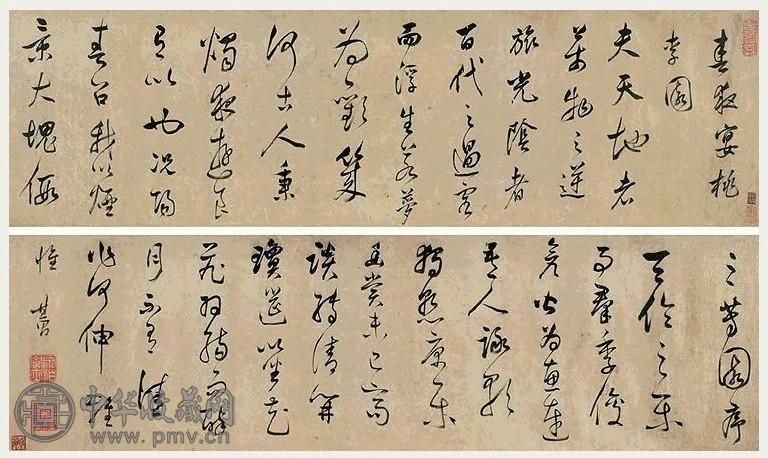 春夜宴桃
李園
夫天地者
萬物之逆
旅光陰者
百代之過客
而浮生若夢
為歡幾
何古人秉
燭夜遊良
有以也況陽
春召我以煙
景大塊假
之芳園序
天倫之樂
事群季俊
秀皆為惠連
吾人詠歌
獨慚康樂
幽賞未已高
談轉清開
瓊筵以坐花
飛羽觴而醉
月不有佳
作何伸雅
懷 其昌
中华收藏网
www.pmv.cn